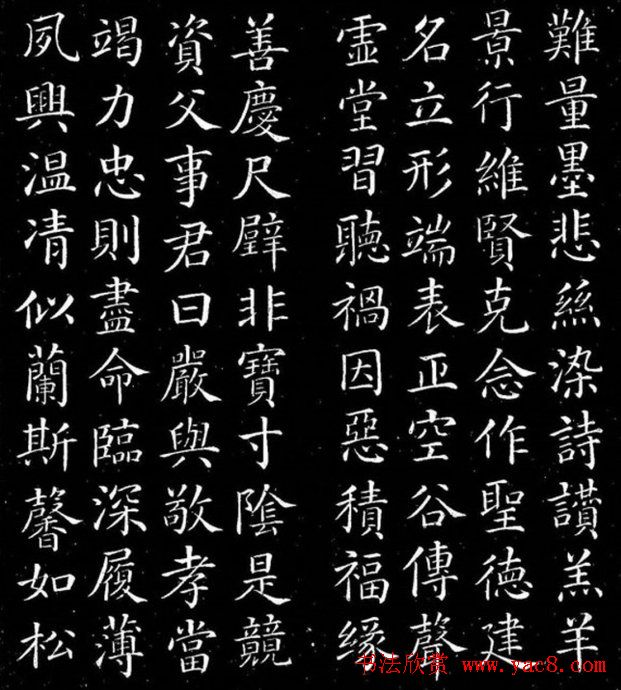 難量墨悲絲染詩讚羔羊
景行維賢克念作聖德建
名立形端表正空谷傳聲
虛堂習聽禍因惡積福緣
善慶尺璧非寶寸陰是競
資父事君曰嚴與敬孝當
竭力忠則盡命臨深履薄
夙興温凊似蘭斯馨如松
书法欣赏 www.yac8.com